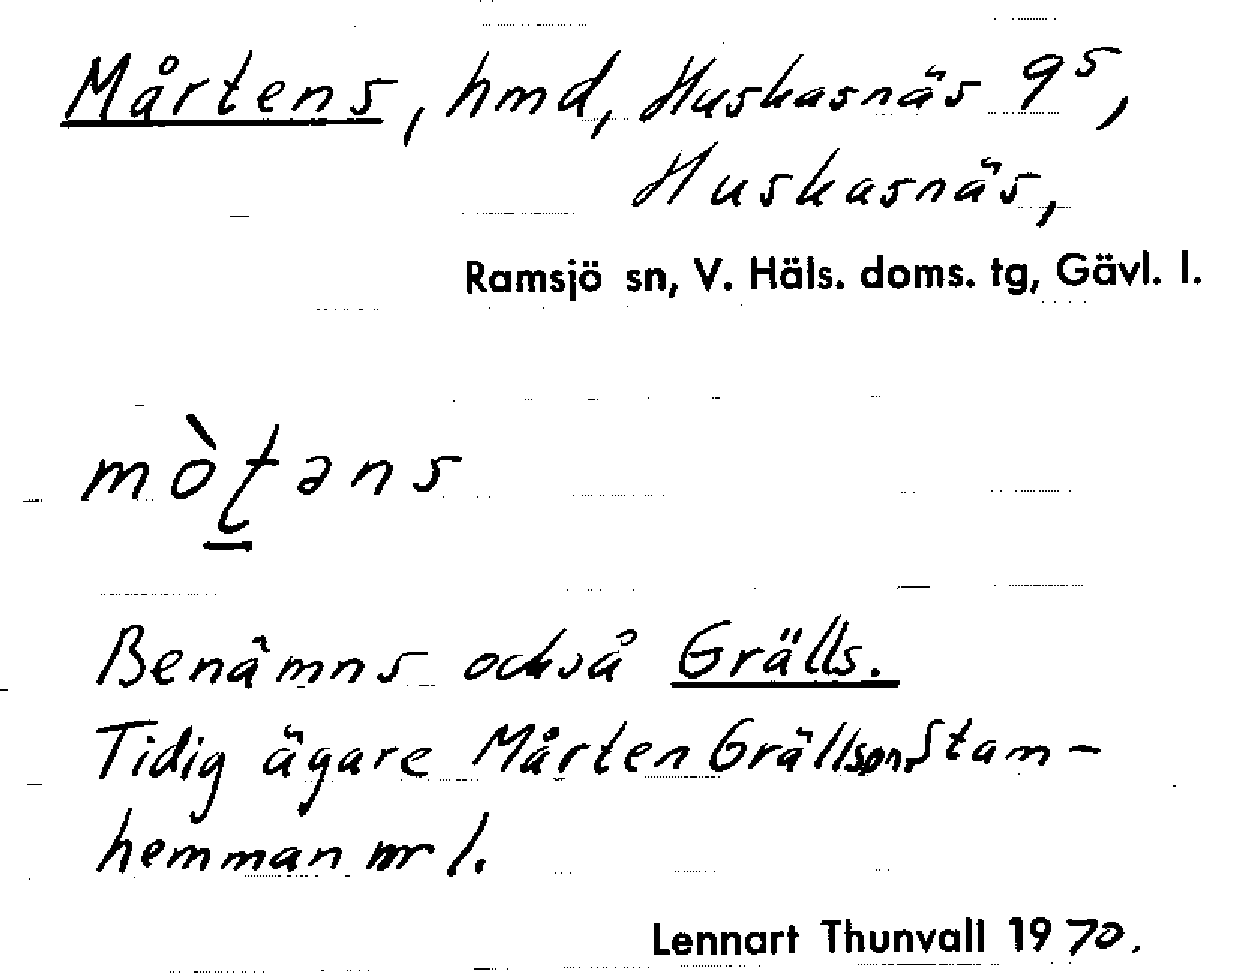 Mårtens, hmd, Huskasnäs 9⁵,
Huskasnäs,
Ramsjö sn, V. Häls. doms. tg, Gävl. l.
mòʈəns
Benämns också Grälls.
Tidig ägare Mårten Grällson. Stam-
hemman nr 1.
Lennart Thunvall 1970.